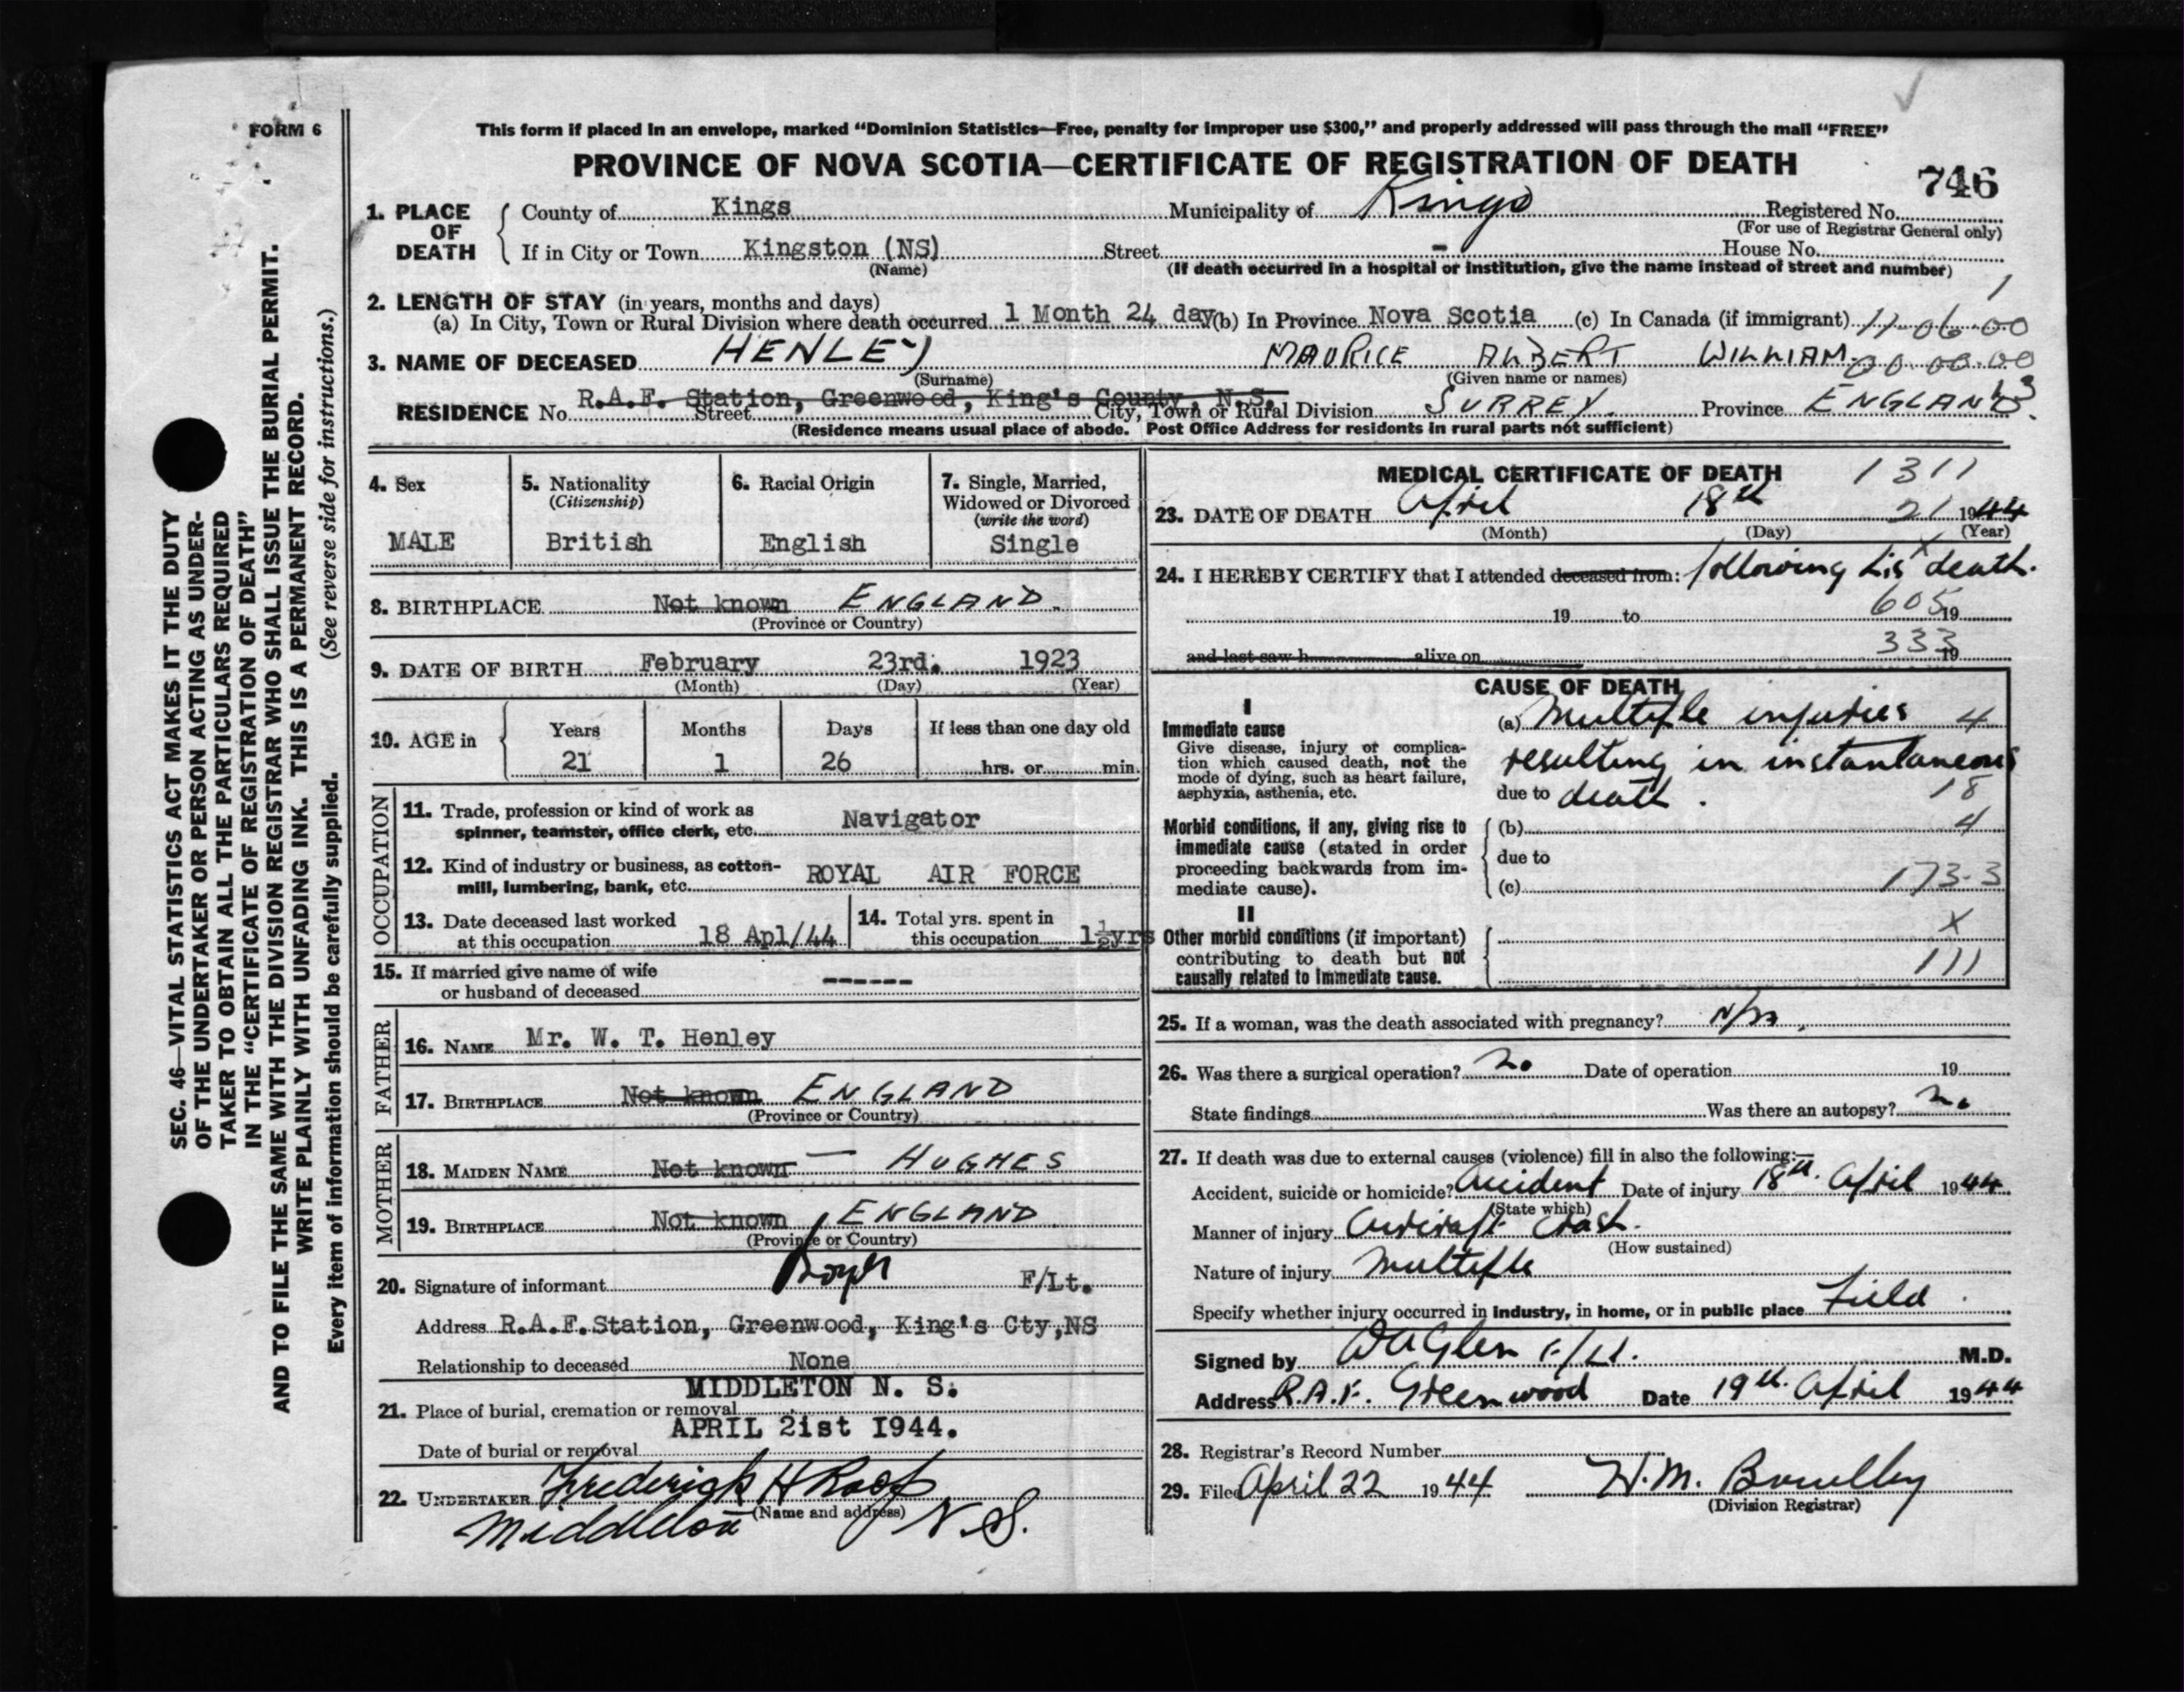 FORM 6
This form if placed in an envelope, marked "Dominion Statistics—Free, penalty for improper use $300," and properly addressed will pass through the mail "FREE"
PROVINCE OF NOVA SCOTIA—CERTIFICATE OF REGISTRATION OF DEATH
746
1. PLACE OF DEATH County of Kings Municipality of Kings Registered No.
(For use of Registrar General only)
If in City or Town Kingston (NS) Street - House No.
(Name) (If death occurred in a hospital or institution, give the name instead of street and number)
1
2. LENGTH OF STAY (in years, months and days)
(a) In City, Town or Rural Division where death occurred 1 Month 24 day (b) In Province Nova Scotia (c) In Canada (if immigrant) 11-06-00
3. NAME OF DECEASED HENLEY MAURICE ALBERT WILLIAM 00-00-00
(Surname) (Given name or names)
RESIDENCE No. R.A.F. Station, Greenwood, King's County, N.S. Street City, Town or Rural Division SURREY. Province ENGLAND.
(Residence means usual place of abode. Post Office Address for residents in rural parts not sufficient)
4. Sex
MALE
5. Nationality
(Citizenship)
British
6. Racial Origin
English
7. Single, Married,
Widowed or Divorced
(write the word)
Single
8. BIRTHPLACE Not known ENGLAND.
(Province or Country)
9. DATE OF BIRTH February 23rd. 1923
(Month) (Day) (Year)
10. AGE in Years Months Days If less than one day old
21 1 26 hrs. or min.
OCCUPATION
11. Trade, profession or kind of work as
spinner, teamster, office clerk, etc. Navigator
12. Kind of industry or business, as cotton-
mill, lumbering, bank, etc. ROYAL AIR FORCE
13. Date deceased last worked
at this occupation 18 Apl/44
14. Total yrs. spent in
this occupation 1½yrs
15. If married give name of wife
or husband of deceased ------
FATHER
16. NAME Mr. W. T. Henley
17. BIRTHPLACE Not known ENGLAND
(Province or Country)
MOTHER
18. MAIDEN NAME Not known — HUGHES
19. BIRTHPLACE Not known ENGLAND
(Province or Country)
20. Signature of informant F/Lt.
Address R.A.F.Station, Greenwood, King's Cty,NS
Relationship to deceased None
MIDDLETON N. S.
21. Place of burial, cremation or removal
APRIL 2ist I944.
Date of burial or removal
22. UNDERTAKER Frederick H Roop
(Name and address)
Middleton N.S.
MEDICAL CERTIFICATE OF DEATH 1311
23. DATE OF DEATH April 18th 21 1944
(Month) (Day) (Year)
24. I HEREBY CERTIFY that I attended deceased from: following his death.
19 to 605 19
and last saw h alive on 333 19
CAUSE OF DEATH
I
Immediate cause
Give disease, injury or complica-
tion which caused death, not the
mode of dying, such as heart failure,
asphyxia, asthenia, etc.
(a) Multiple injuries 4
resulting in instantaneous
due to death. 18
Morbid conditions, if any, giving rise to
immediate cause (stated in order
proceeding backwards from im-
mediate cause).
(b) 4
due to
(c) 173-3
II
Other morbid conditions (if important)
contributing to death but not
causally related to immediate cause.
X
111
25. If a woman, was the death associated with pregnancy?
26. Was there a surgical operation? no Date of operation 19
State findings Was there an autopsy? no
27. If death was due to external causes (violence) fill in also the following:—
Accident, suicide or homicide? Accident Date of injury 18th. April 1944
(State which)
Manner of injury Aircraft crash.
(How sustained)
Nature of injury Multiple
Specify whether injury occurred in industry, in home, or in public place Field.
Signed by Glen F/Lt. M.D.
Address R.A.F. Greenwood Date 19th. April 1944
28. Registrar's Record Number
29. Filed April 22 1944 H.M.
(Division Registrar)
SEC. 46—VITAL STATISTICS ACT MAKES IT THE DUTY
OF THE UNDERTAKER OR PERSON ACTING AS UNDER-
TAKER TO OBTAIN ALL THE PARTICULARS REQUIRED
IN THE "CERTIFICATE OF REGISTRATION OF DEATH"
AND TO FILE THE SAME WITH THE DIVISION REGISTRAR WHO SHALL ISSUE THE BURIAL PERMIT.
WRITE PLAINLY WITH UNFADING INK. THIS IS A PERMANENT RECORD.
Every item of information should be carefully supplied. (See reverse side for instructions.)